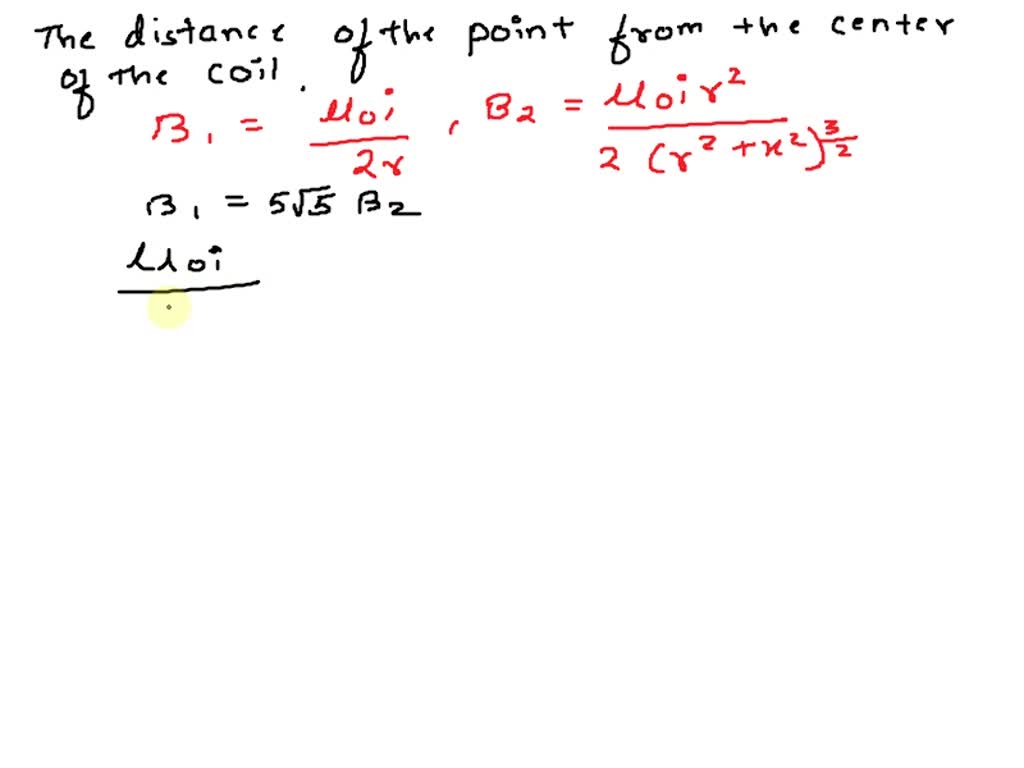 The distance of the point from the center
of the coil.
B₁ = μ₀i / 2r , B₂ = μ₀ir² / 2(r² + x²)^3/2
B₁ = 5√5 B₂
μ₀i